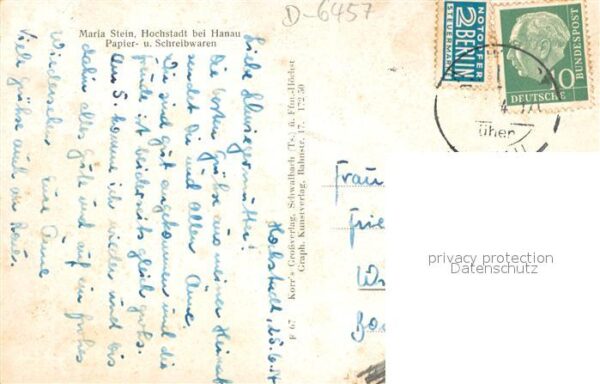 D-6457
Maria Stein, Hochstadt bei Hanau
Papier- u. Schreibwaren
NOTOPFER
2 BERLIN
STEUERMARKE
DEUTSCHE BUNDESPOST
10
über
Hochstadt, 25.6.
Liebe Schwiegermutter!
Die besten Grüße aus meiner Heimat
sendet dir und allen Änne.
Wir sind gut angekommen und die
Freude ist beiderseits gleich groß.
Am 5. komme ich wieder und bis
dahin alles Gute und auf ein frohes
Wiedersehen Eure Änne
Viele Grüße auch
F 67 Korr's Großverlag, Schwalbach (Ts.) ü. Ffm.-Höchst
Graph. Kunstverlag, Bahnstr. 17. 172 50
Frau
privacy protection
Datenschutz